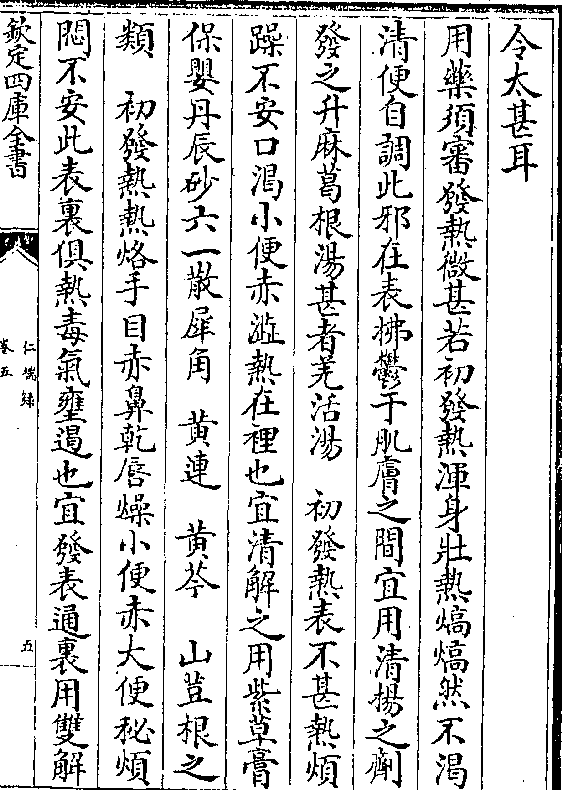 令太甚耳
用藥須審發熱微甚若初發熱渾身壯熱熇熇然不渴
清便自調此邪在表拂鬱于肌膚之間宜用清揚之劑
發之升麻葛根湯甚者羌活湯　初發熱表不甚熱煩
躁不安口渴小便赤澁熱在裡也宜清解之用紫草膏
保嬰丹辰砂六一散犀角　黄連　黄芩　山豆根之
類　初發熱熱烙手目赤鼻乾唇燥小便赤大便秘煩
悶不安此表裏俱熱毒氣壅遏也宜發表通裏用雙解
欽定四庫全書
仁端録
卷五
五